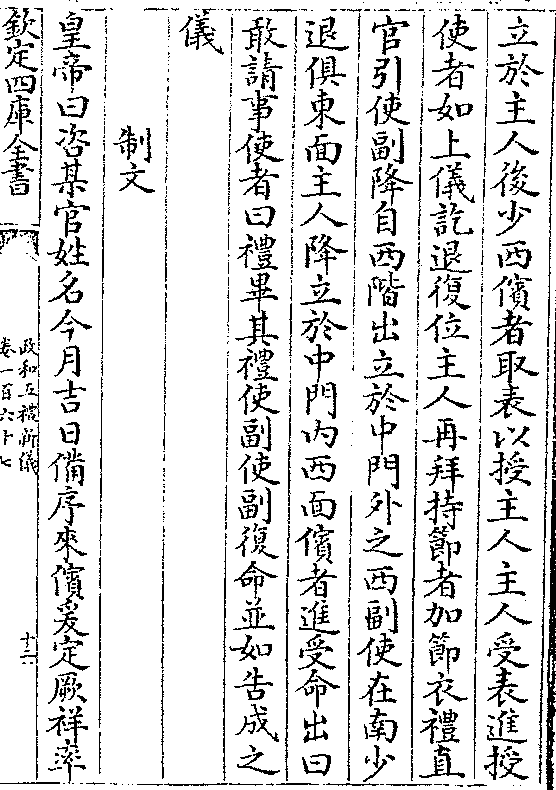 立於主人後少西儐者取表以授主人主人受表進授
使者如上儀訖退復位主人再拜持節者加節衣禮直
官引使副降自西階出立於中門外之西副使在南少
退俱東面主人降立於中門内西面儐者進受命出曰
敢請事使者曰禮畢其禮使副使副復命並如告成之
儀
制文
皇帝曰咨某官姓名今月吉日備序來儐爰定厥祥率
欽定四庫全書
政和五禮新儀
卷一百六十七